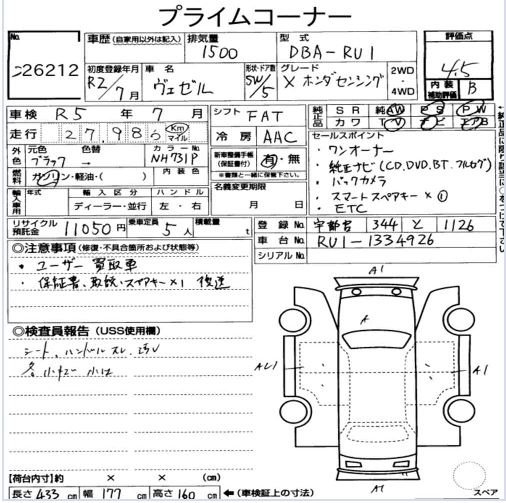 プライムコーナー
No.
26212
車歴 (自家用以外は記入)
排気量
1500
型式
DBA-RU1
評価点
4.5
初度登録年月
R2/7月
車名
ヴェゼル
形状・ドア数
5W/5
グレード
X ホンダセンシング
2WD
4WD
内装
補助評価
B
車検 R5年 7月
シフト FAT
純正品
SR AW PS PW
カワ TV ナビ エアB
走行 27,986 Km マイル
冷房 AAC
セールスポイント
・ワンオーナー
・純正ナビ(CD,DVD,BT,フルセグ)
・バックカメラ
・スマートスペアキー×①
・ETC
外色
元色
ブラック
色替
→
カラーNo.
NH731P
新車整備手帳
(保証書付)
有・無
※整備手帳は車検証と一緒に保管して下さい。
燃料
ガソリン・軽油・( )
内装色
名義変更期限
月 日
輸入車用
輸入区分
ハンドル
ディーラー・並行
左・右
リサイクル
預託金
11050円
乗車定員
5人
積載量
t
登録No.
宇都宮 344 と 1126
車台No.
RU1-1334926
シリアルNo.
◎注意事項(修復・不具合箇所および状態等)
・ユーザー買取車
・保証書、取説、スペアキー×1 後送
◎検査員報告(USS使用欄)
シート、ハンドルスレ、汚レ
各小キズ 小凹
A1
A
AU1
A1
A1
【荷台内寸】約 × × (cm)
長さ 433 cm 幅 177 cm 高さ 160 cm
←(車検証上の寸法)
スペア